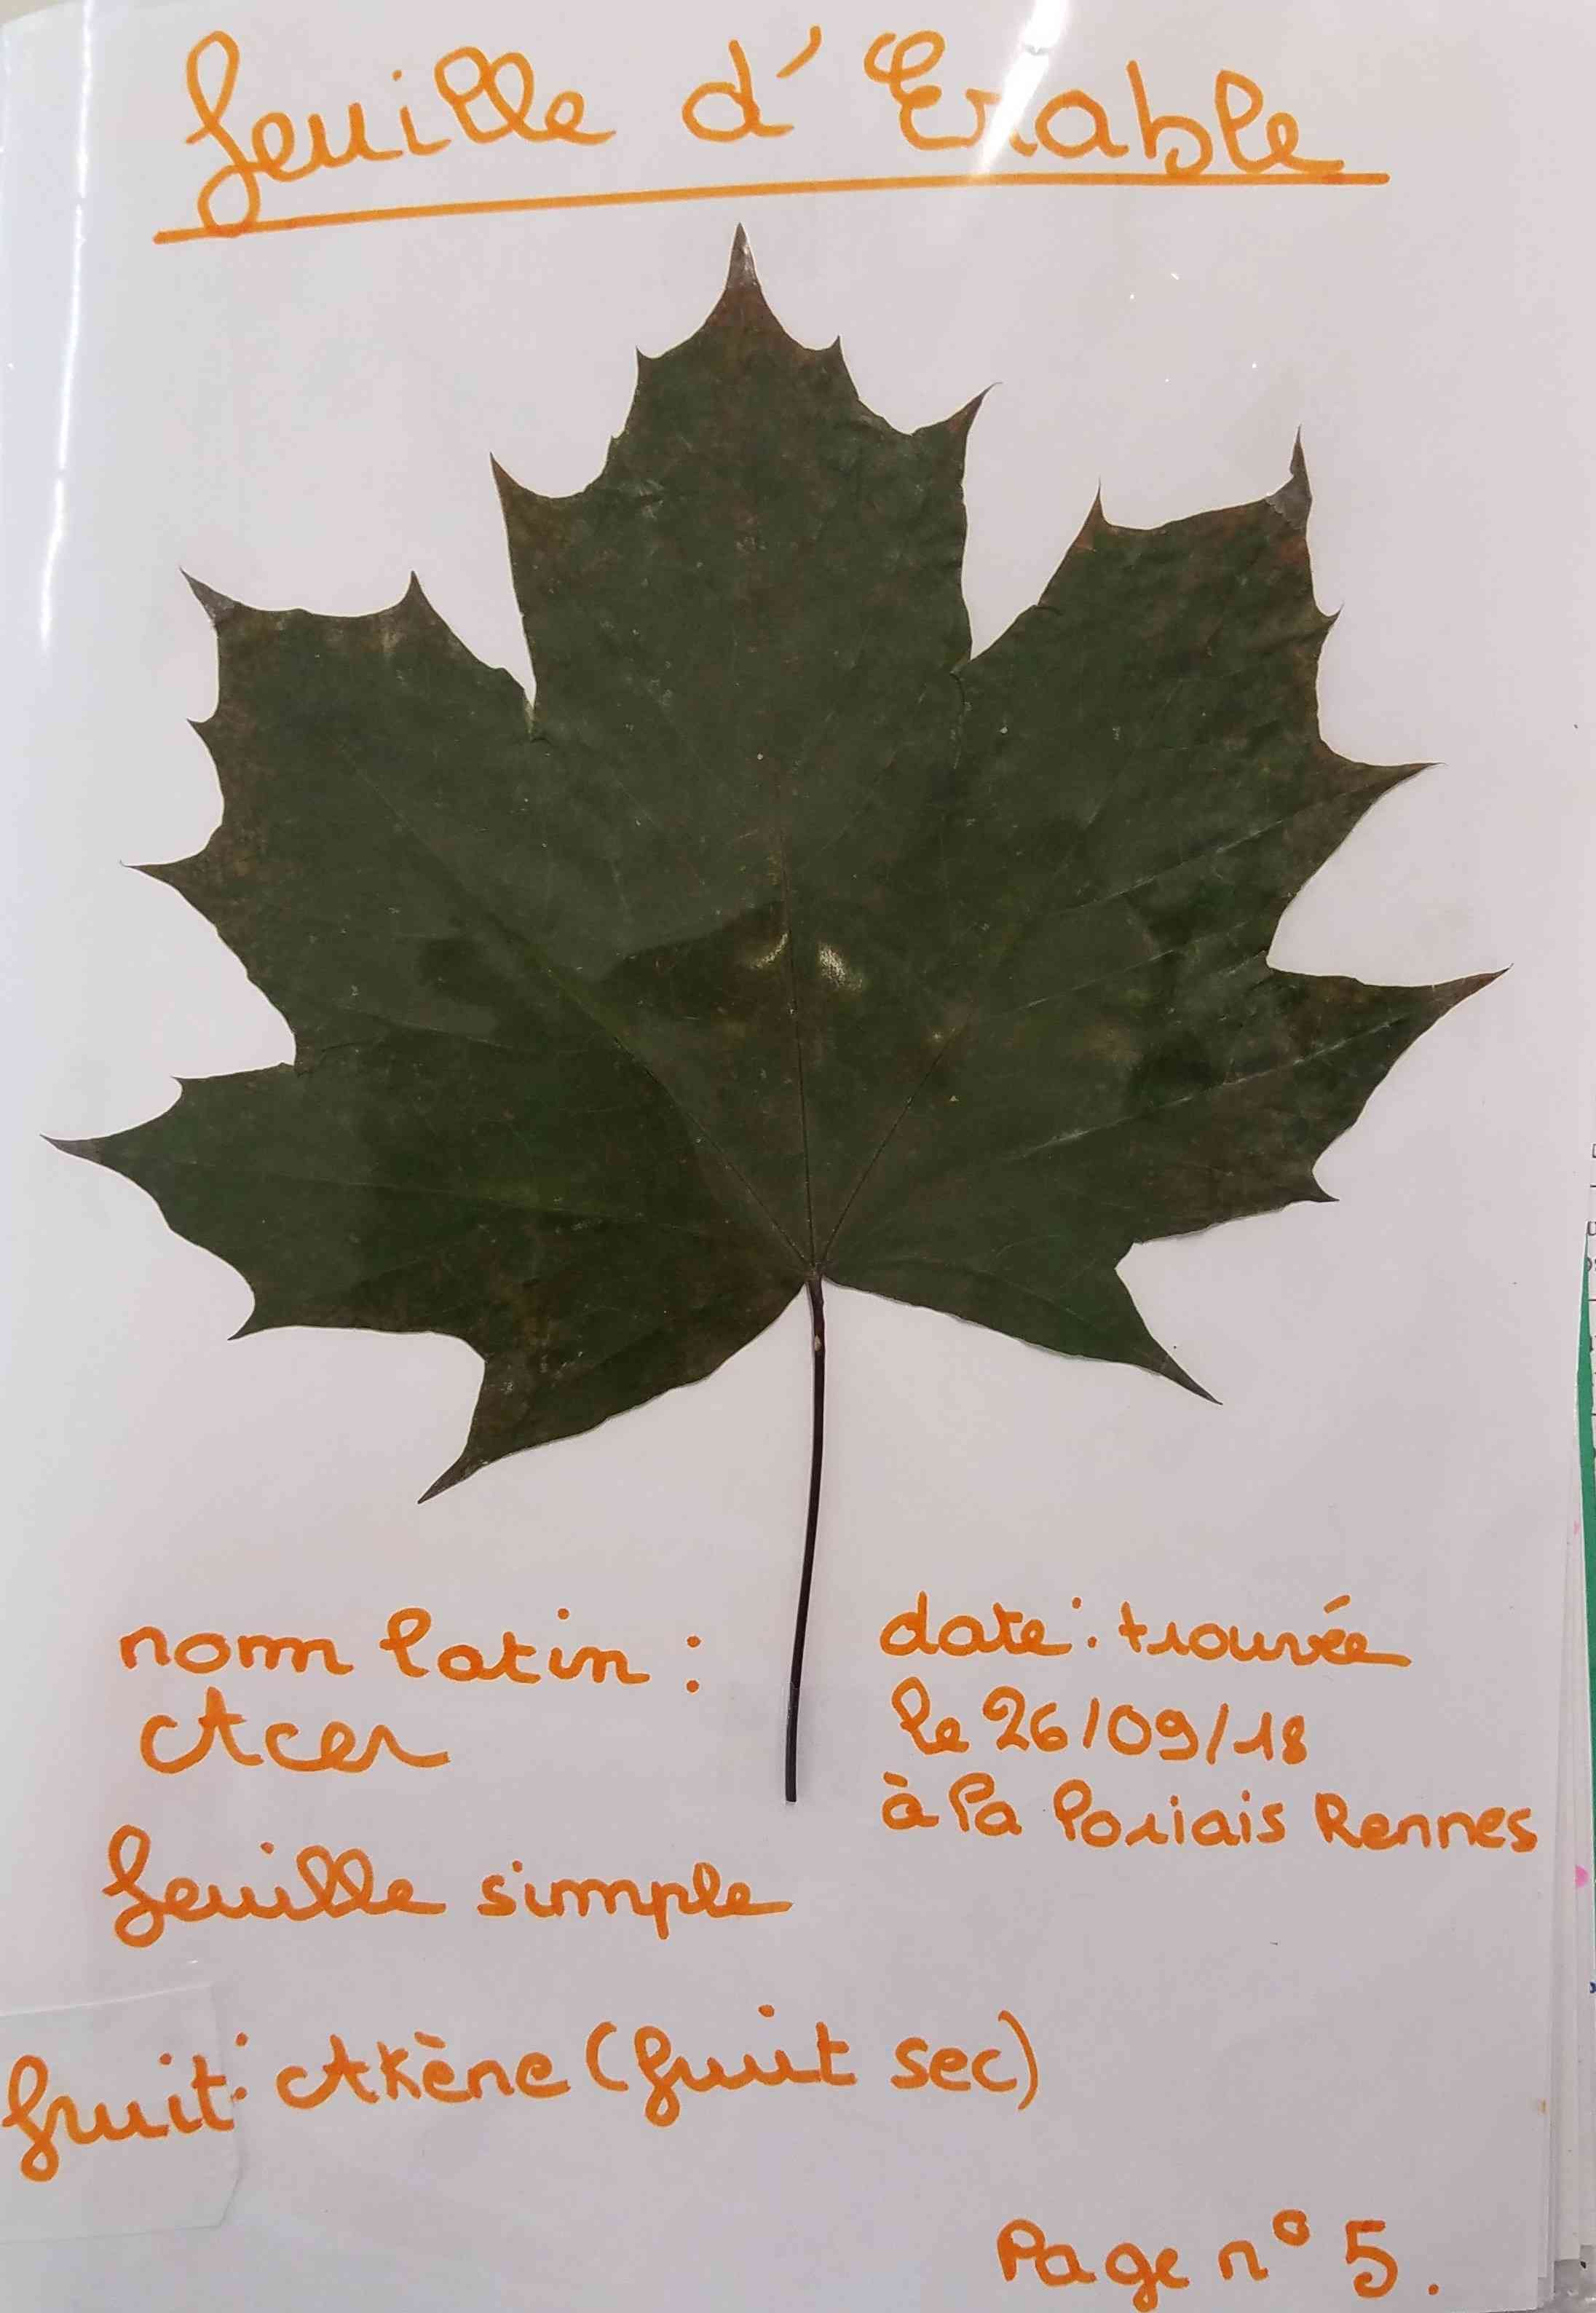 feuille d'Erable
nom latin :
Acer
date : trouvée
le 26/09/18
à la Poriais Rennes
feuille simple
fruit : Akène (fruit sec)
Page n° 5.